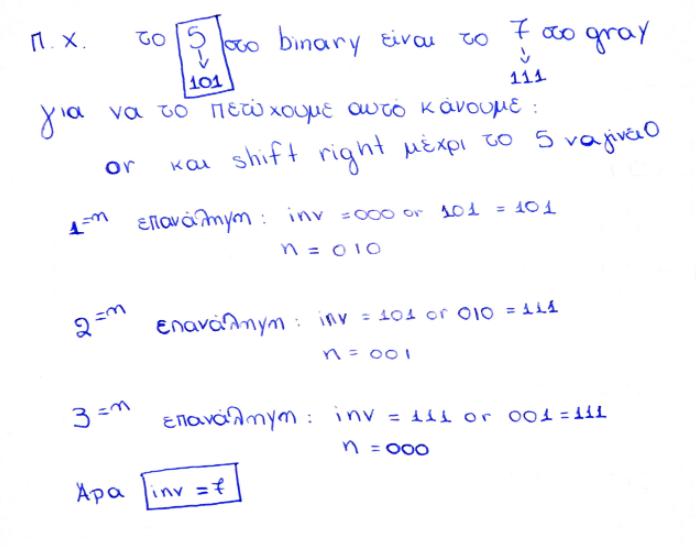 π.χ. το 5 στο binary είναι το 7 στο gray
↓ ↓
101 111
για να το πετύχουμε αυτό κάνουμε:
or και shift right μέχρι το 5 να γίνει 0
1=η επανάληψη: inv = 000 or 101 = 101
n = 010
2=η επανάληψη: inv = 101 or 010 = 111
n = 001
3=η επανάληψη: inv = 111 or 001 = 111
n = 000
Άρα inv = 7